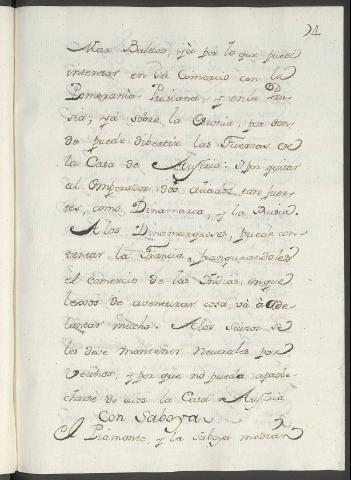 14
Mar Baltico, ya por lo que puede
interesar en su Comercio con la
Pomerania Prusiana, y en la Pru-
sia; ya sobre la Polonia, por don-
de puede dibertir las Fuerzas de
la Casa de Austria: o por quitar
al Emperador dos aliados tan fuer-
tes, como Dinamarca, y la Rusia.
A los Dinamarqueses, puede con-
tentar la Francia, franqueandoles
el comercio de las Indias, en que
lexos de aventurar cosa, và à ade-
lantar mucho. A los Suizos se
les debe mantener Neutrales por
Vecinos, y por que no pueda aprobe-
charse de ellos la Casa de Austria
Con Saboya
El Piamonte, y la Saboya median